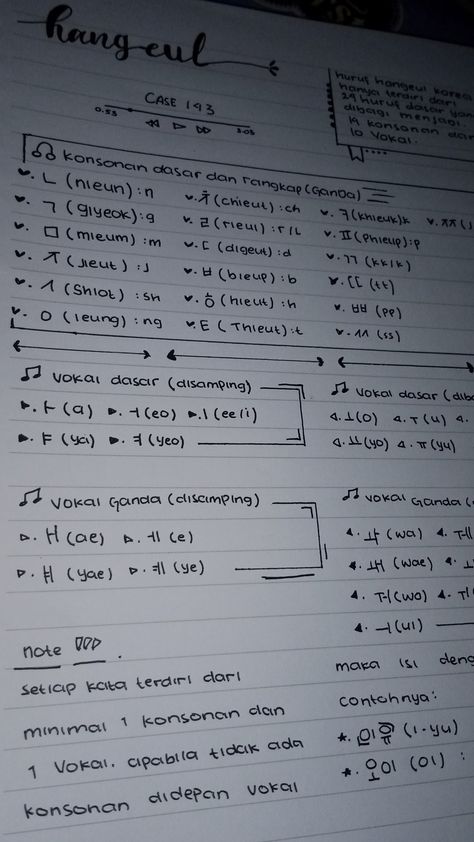 hangeul
huruf hangeul korea
hanya terdiri dari
24 huruf dasar yan
dibagi menjadi
14 konsonan dan
10 vokal.
CASE 143
0.53 3.05
konsonan dasar dan rangkap (Ganda)
ㄴ (nieun) : n
ㄱ (giyeok) : g
ㅁ (mieum) : m
ㅈ (jieut) : J
ㅅ (Shiot) : sh
ㅇ (ieung) : ng
ㅊ (chieut) : ch
ㄹ (rieul) : r/L
ㄷ (digeut) : d
ㅂ (bieup) : b
ㅎ (hieut) : h
ㅌ (Thieut) : t
ㅋ (khieuk) k
ㅍ (Phieup) : p
ㄲ (kk/k)
ㄸ (tt)
ㅃ (pp)
ㅆ (ss)
ㅉ (J
vokal dasar (disamping)
ㅏ (a) ㅓ (eo) ㅣ (ee/i)
ㅑ (ya) ㅕ (yeo)
vokal dasar (diba
ㅗ (o) ㅜ (u)
ㅛ (yo) ㅠ (yu)
vokal Ganda (disamping)
ㅐ (ae) ㅔ (e)
ㅒ (yae) ㅖ (ye)
vokal Ganda (
ㅘ (wa) ㅞ
ㅙ (wae)
ㅝ (wo) ㅟ
ㅢ (ui)
note
setiap kata terdiri dari
minimal 1 konsonan dan
1 vokal. apabila tidak ada
konsonan didepan vokal
maka isi deng
contohnya:
*. 이유 (i-yu)
*. 오이 (oi) :